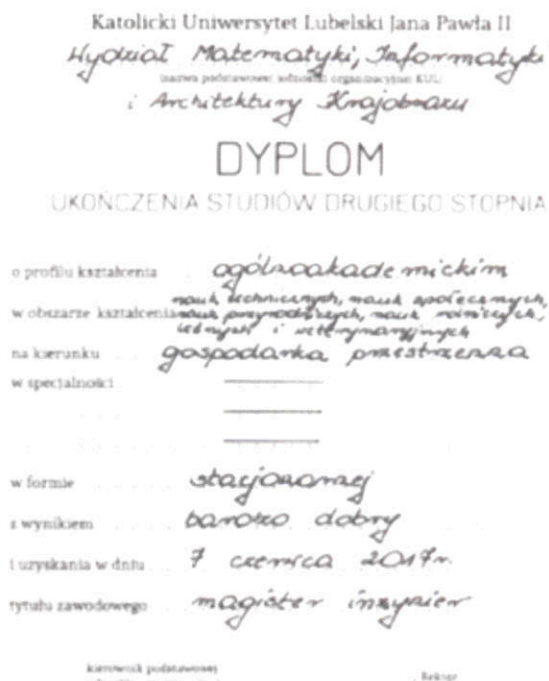 Katolicki Uniwersytet Lubelski Jana Pawła II
Wydział Matematyki, Informatyki
(nazwa podstawowej jednostki organizacyjnej KUL)
i Architektury Krajobrazu
DYPLOM
UKOŃCZENIA STUDIÓW DRUGIEGO STOPNIA
o profilu kształcenia ogólnoakademickim
nauk technicznych, nauk społecznych,
w obszarze kształcenia nauk przyrodniczych, nauk rolniczych,
leśnych i weterynaryjnych
na kierunku gospodarka przestrzenna
w specjalności
w formie stacjonarnej
z wynikiem bardzo dobry
i uzyskania w dniu 7 czerwca 2017r.
tytułu zawodowego magister inżynier
kierownik podstawowej
Rektor